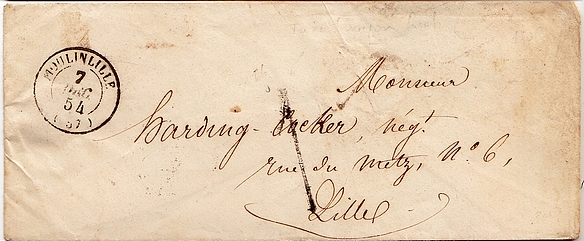 MOULINLILLE
7
DEC.
54
(57)
Monsieur
Harding-Cocker, négt
rue du Metz, N° 6,
Lille